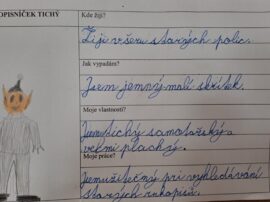 OPISNÍČEK TICHÝ
Kde žiji?
Žije v šeru starých polic.
Jak vypadám?
Jsem jemný malí skřítek.
Moje vlastnosti?
Jsem tichý samotářský a
velmi plachý.
Moje práce?
Jsem užitečný pri vyhledávání
starých rukopisů.